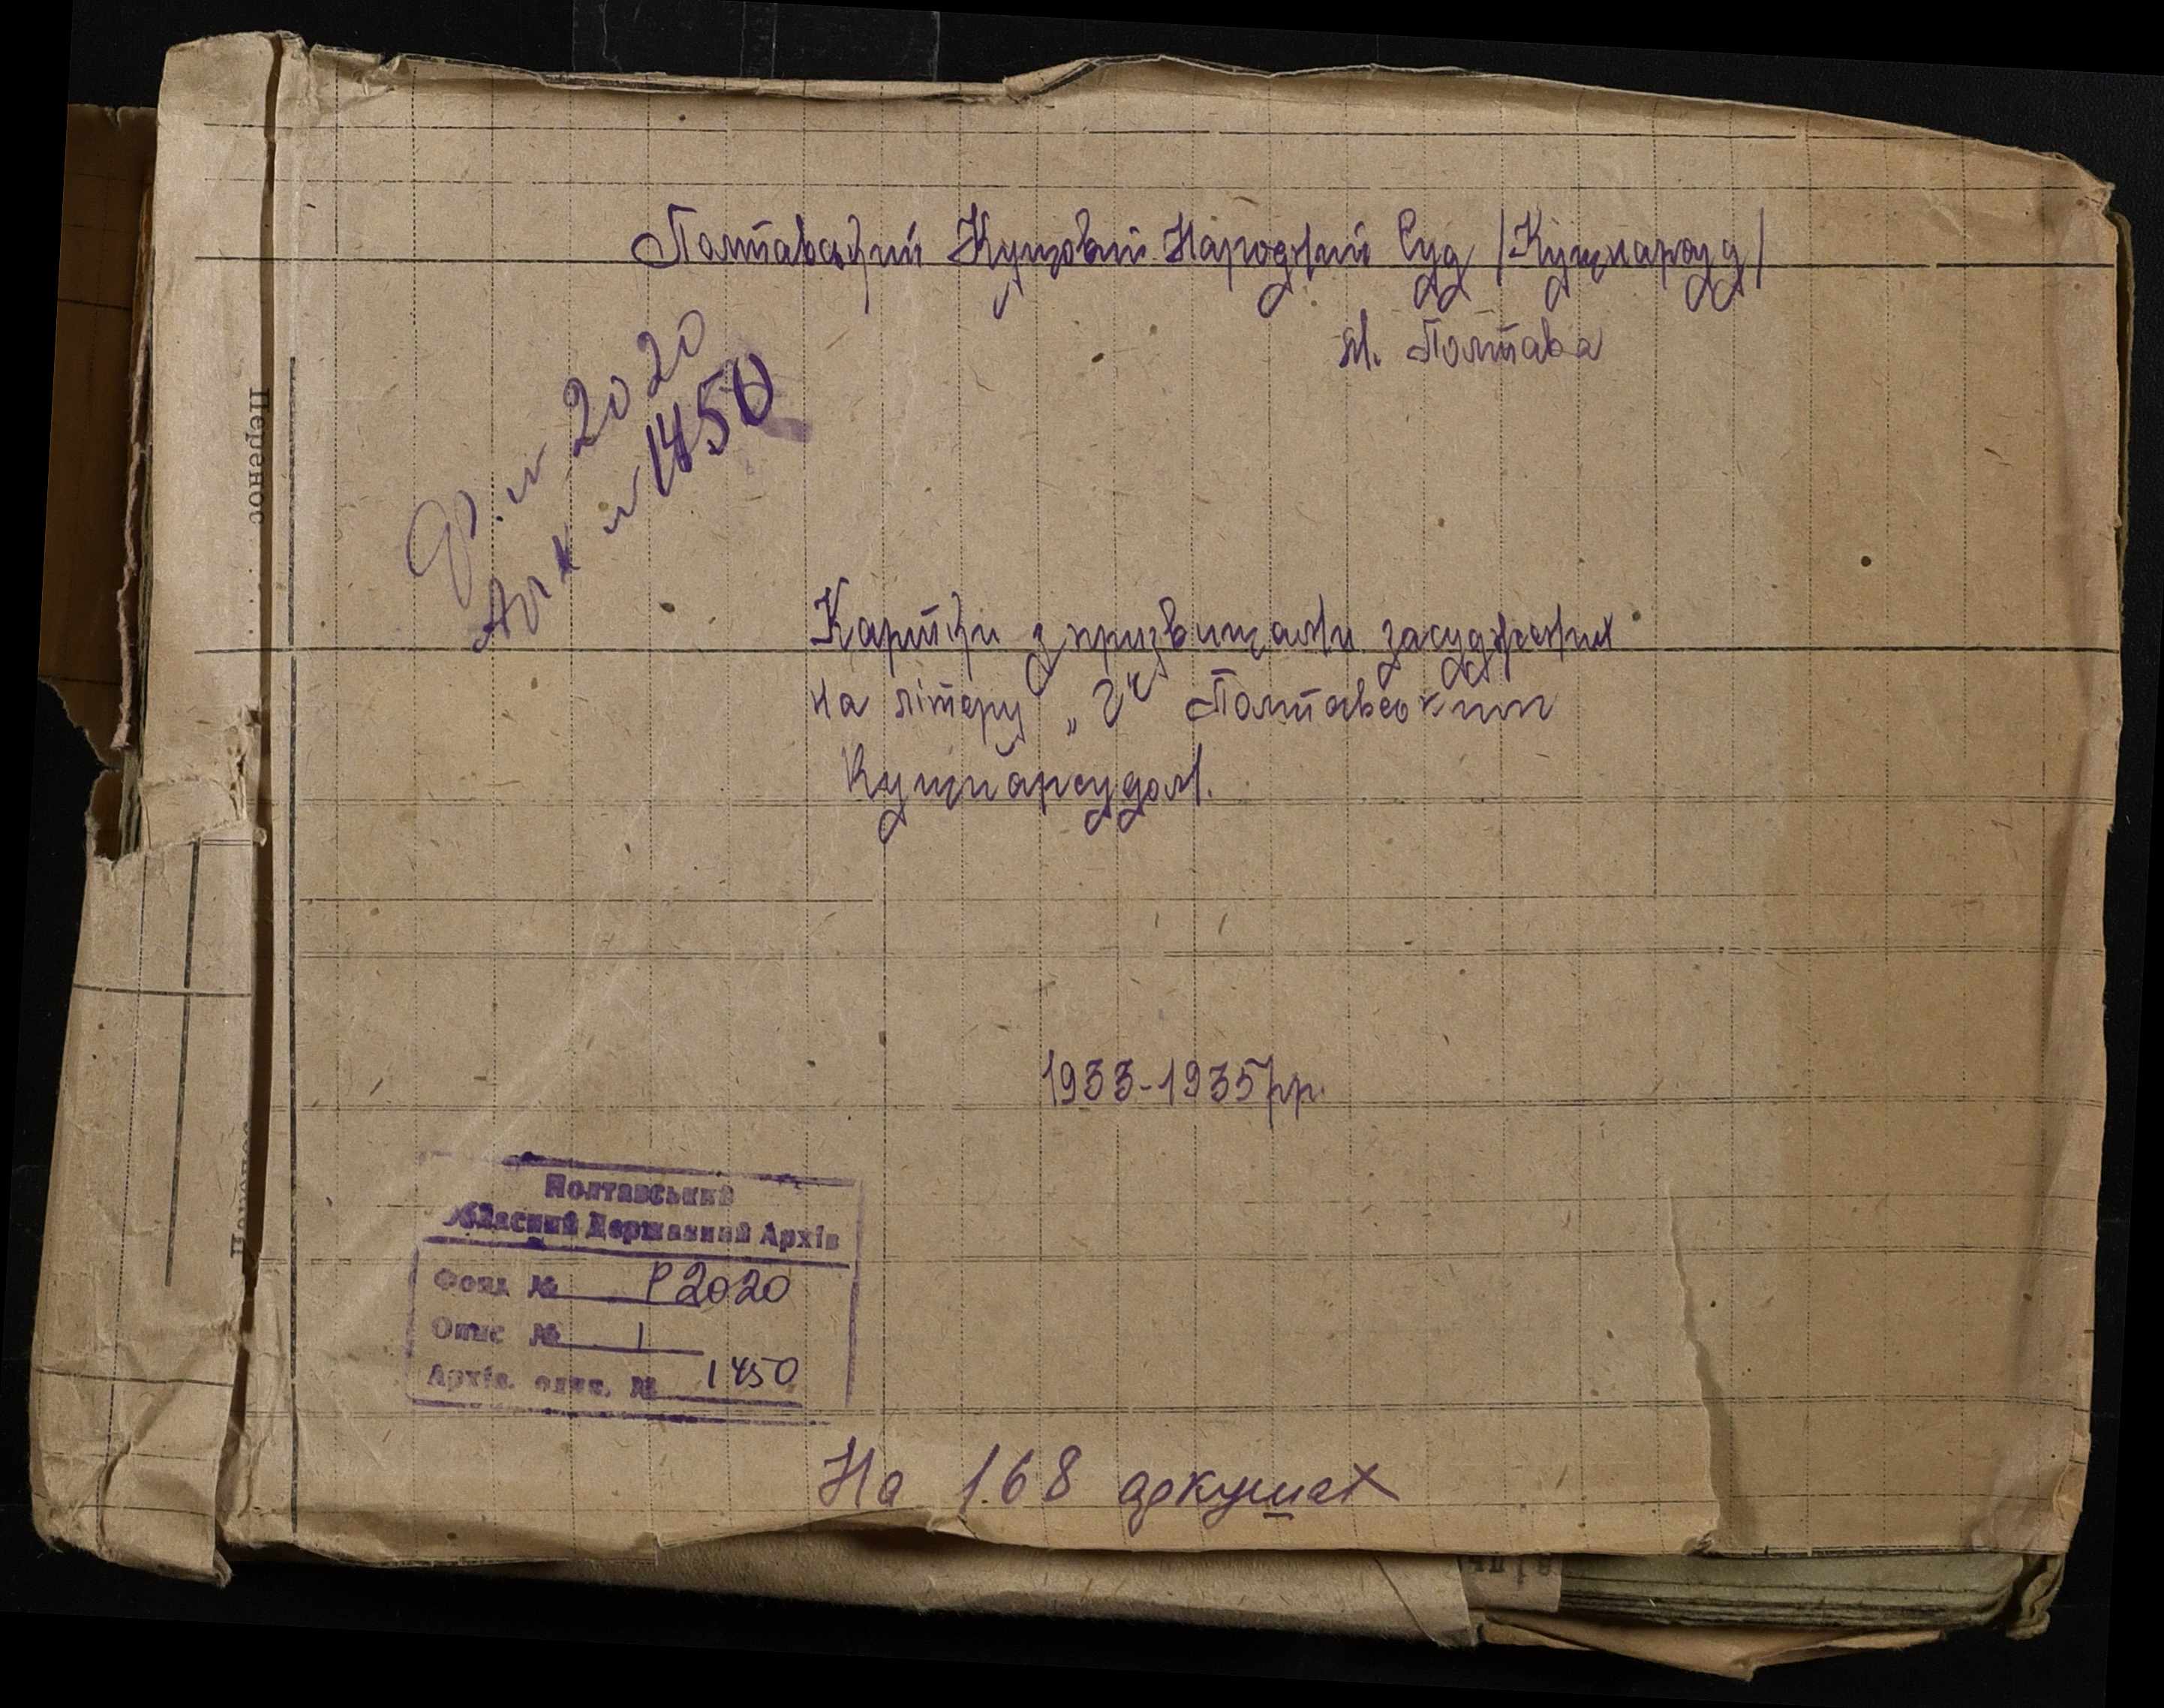 Полтавський Кущовий Народний Суд /Кущнарсуд/
м. Полтава
Ф. № 2020
Арх № 1450
Перенос
Картки з призвищами засуджених
на літеру „Г“ Полтавським
Кущнарсудом.
1933-1935 рр.
Полтавський
Обласний Державний Архів
Фонд № Р2020
Опис № 1
Архів. один. № 1450
На 168 аркушах